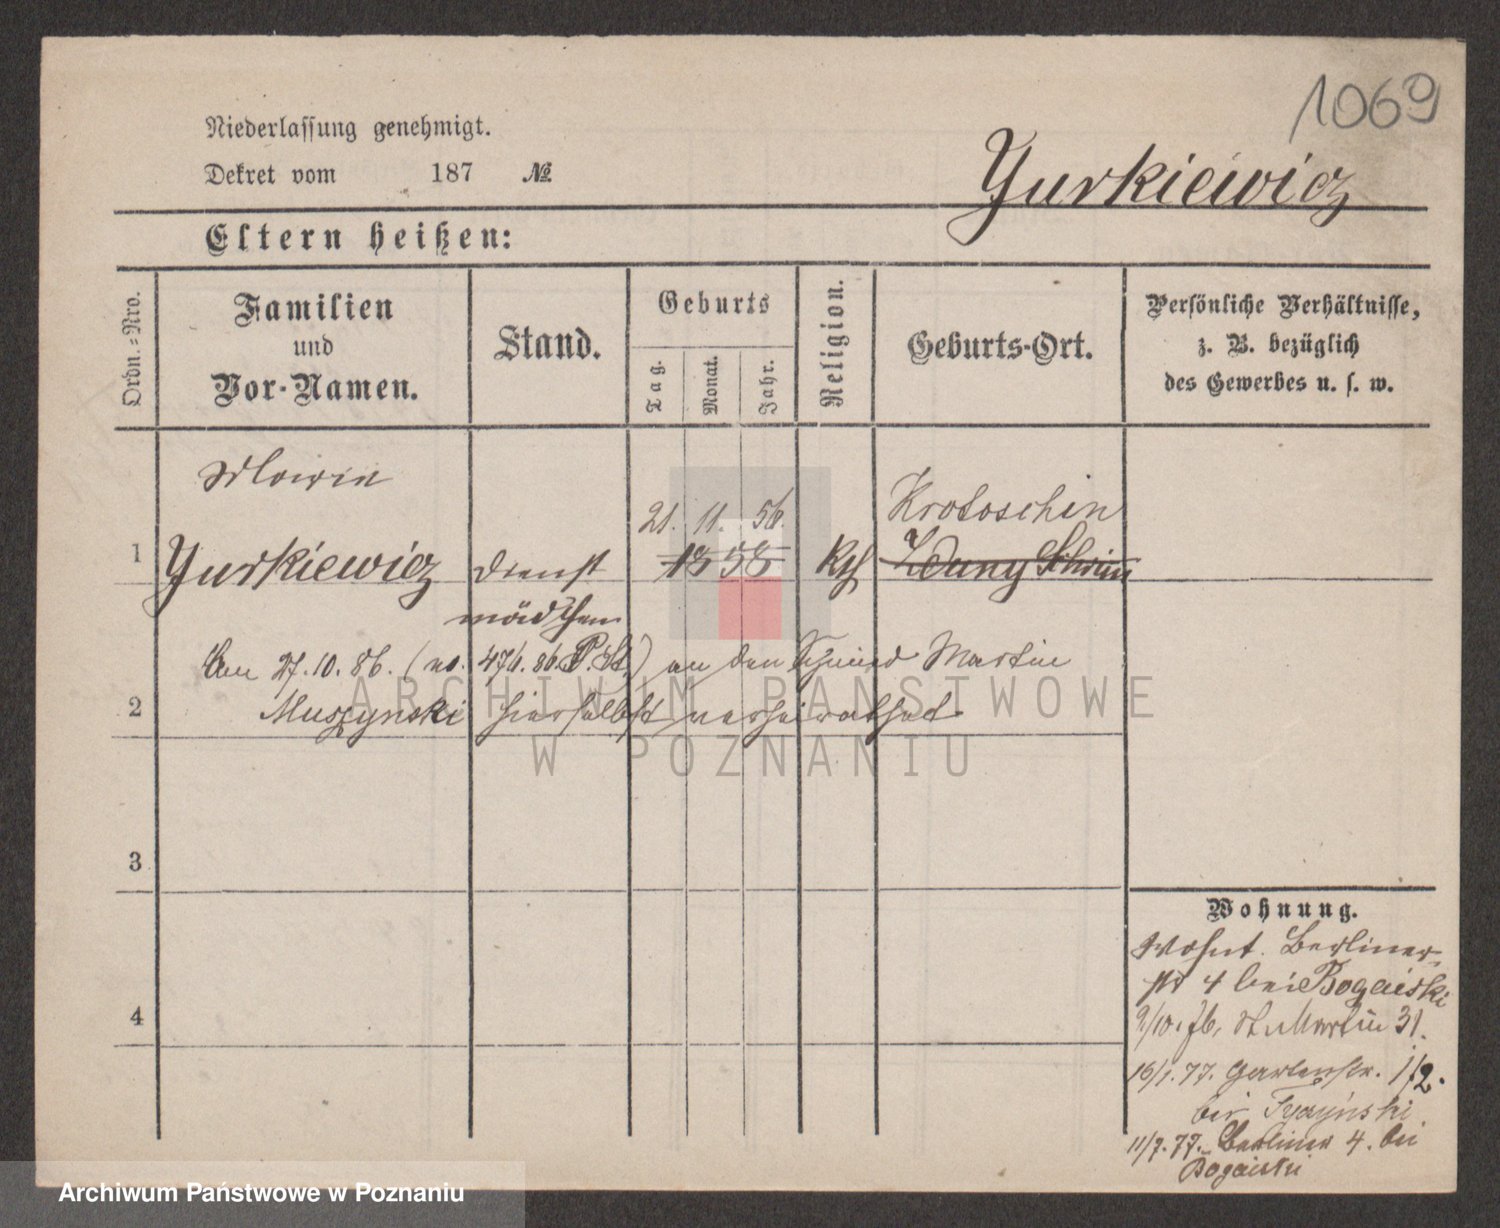 1069
Niederlassung genehmigt.
Dekret vom 187 №
Yurkiewicz
Eltern heißen:
Ordn.-Nro.
Familien
und
Vor-Namen.
Stand.
Geburts
Tag.
Monat.
Jahr.
Religion.
Geburts-Ort.
Persönliche Verhältnisse,
z. B. bezüglich
des Gewerbes u. s. w.
21. 11. 56.
Krotoschin
1 Yurkiewicz Dienst 1858 Kth Schrim
mädchen
Am 27.10.86. (no. P. St.) an den Schmied Martin
2 Muszynski hierselbst verheirathet
ARCHIWUM PAŃSTWOWE
W POZNANIU
3
4
Wohnung.
Wohnt. Berliner
str 4 bei Bogaiski
9/10. 76. St. Martin 31.
16/1. 77. Gartenstr. 1/2.
bei
11/7. 77. Berliner 4. bei
Bogaiski
Archiwum Państwowe w Poznaniu